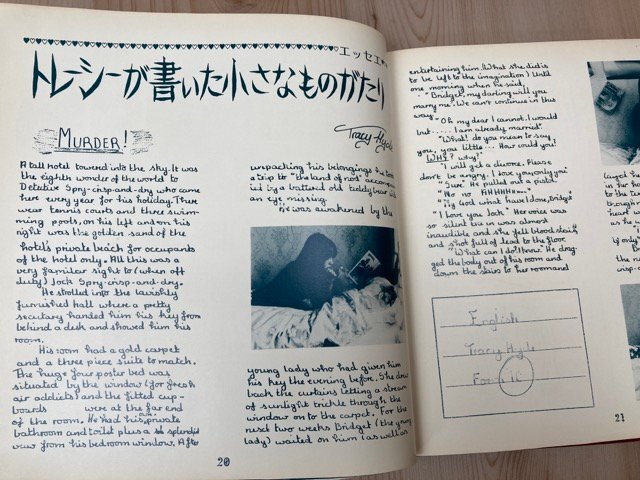 エッセエ
トレーシーが書いた小さなものがたり
MURDER!
Tracy Hyde
A tall hotel towered into the sky. It was
the eighth wonder of the world to
Detetive Spry-crisp-and-dry who came
here every year for his holiday. There
were tennis courts and three swim-
ming pools, on his left and on his
right was the golden sand of the
hotel's private beach for occupants
of the hotel only. All this was a
very familar sight to (when off
duty) Jock Spry-crisp-and-dry.
He strolled into the lavishly
furnished hall where a pretty
secutary handed him his key from
behind a desk and showed him his
room.
His room had a gold carpet
and a three piece suite to match.
The huge four poster bed was
situated by the window (for fresh
air addicts) and the fitted cup-
boards were at the far end
of the room. He had his own private
bathroom and toilet plus a splendid
view from his bedroom window. After
unpacking his belongings he took
a trip to "the land of nod" accompan-
ied by a battered old teddy bear with
an eye missing.
He was awakened by the
young lady who had given him
his key the evening before. She drew
back the curtains letting a stream
of sunlight trickle through the
window on to the carpet. For the
next two weeks Bridget (the young
lady) waited on him (as well as
20
entertaining him. What she did is
to be left to the imagination) Until
one morning when he said,
"Bridget, my darling will you
marry me? We can't continue in this
way."
"Oh my dear I cannot. I would
but..... I am already married".
"What! do you mean to say,
you, you little... How could you!
WHY? why?"
"I will get a divorce. Please
don't be angry. I love you only you"
"Sure". He pulled out a pistol.
"No no AHHHHH~"
"My God what have I done, Bridget"
"I love you Jock". Her voice was
so silent it was almost
inaudible and she fell blood stained
and shot full of lead to the floor.
"What can I do? I know". He drag-
ged the body out of his room and
down the stairs to her room and
English
Tracy Hyde
Form 1C
21